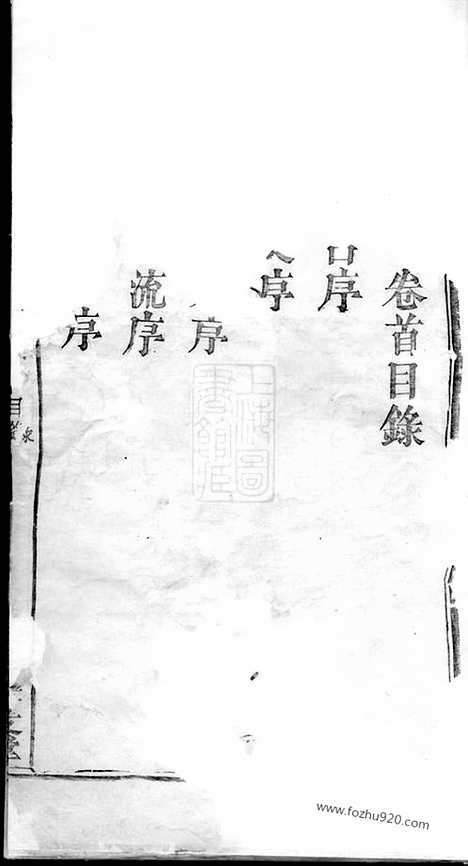 卷首目錄
序
序
序
流序
序
目
上海圖書館藏
www.fozhu920.com